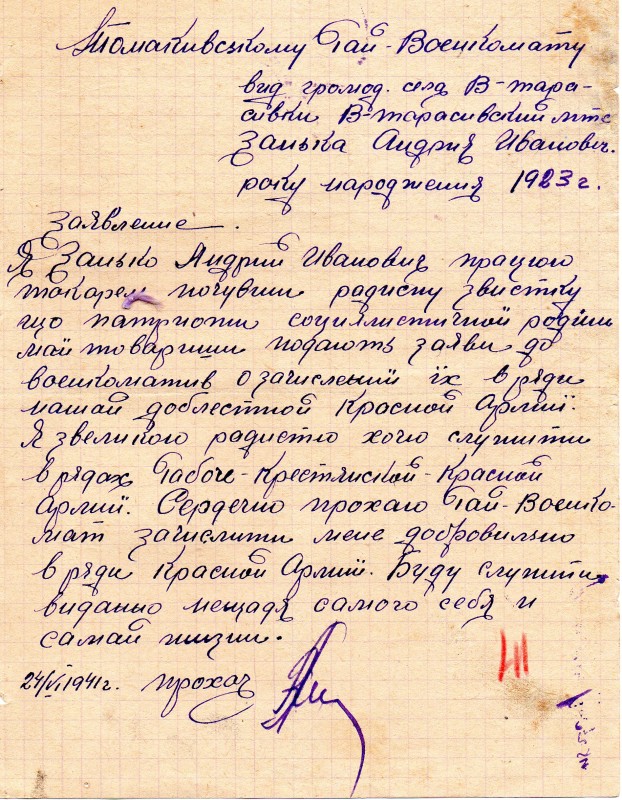 Томаківському Рай-Военкомату
вид громод. села В-тара-
сивки В-тарасивский мтс
Занька Андрия Ивановіч.
року народження 1923 г.
Заявление.
Я Занько Андрий Иванович працюю
токарем почувши радисну звистку
що патриоти социялистичной родіни
май товариши подають заяви до
военкоматив о зачислений їх в ряди
нашай доблестной Красной Армий.
Я звеликою радистю хочю служити
в рядах Рабоче-Крестянской-Красной
Армий. Сердечно прохаю Рай-Военко-
мат зачислити мене добровильно
в ряди Красной Армий. Буду служити
виданно нещадя самого себя и
самай жизни.
24/VI 1941 г. прохач